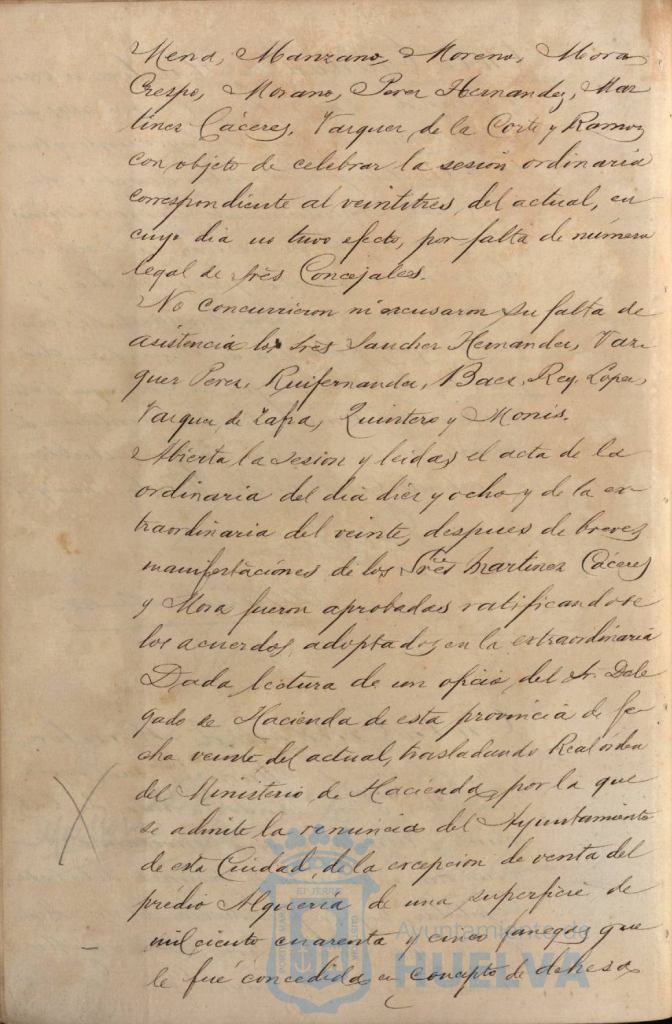 Mena, Manzano, Moreno, Mora
Crespo, Morano, Perez Hernandez, Mar
tinez Cáceres, Vazquez de la Corte y Ramos
con objeto de celebrar la sesión ordinaria
correspondiente al veintitres del actual, en
cuyo dia no tuvo efecto, por falta de número
legal de Sres Concejales.
No concurrieron ni excusaron su falta de
asistencia los Sres Sanchez Hernandez, Vaz
quez Perez, Ruifernandez, Baez, Rey, Lopez,
Vazquez de Zafra, Quintero y Monis.
Abierta la sesion y leidas el acta de la
ordinaria del dia diez y ocho y de la ex-
traordinaria del veinte, despues de breves
manifestaciónes de los Sres Martinez Cáceres
y Mora fueron aprobadas ratificandose
los acuerdos adoptados en la extraordinaria
Dada lectura de un oficio del Sr. Dele
gado de Hacienda de esta provincia de fe
cha veinte del actual, trasladando Real orden
del Ministerio de Hacienda, por la que
se admite la renuncia del Ayuntamiento
de esta Ciudad, de la excepcion de venta del
prédio Alquería de una superficie de
mil ciento cuarenta y cinco fanegas que
le fué concedida en concepto de dehesa
Ayuntamiento de
HUELVA